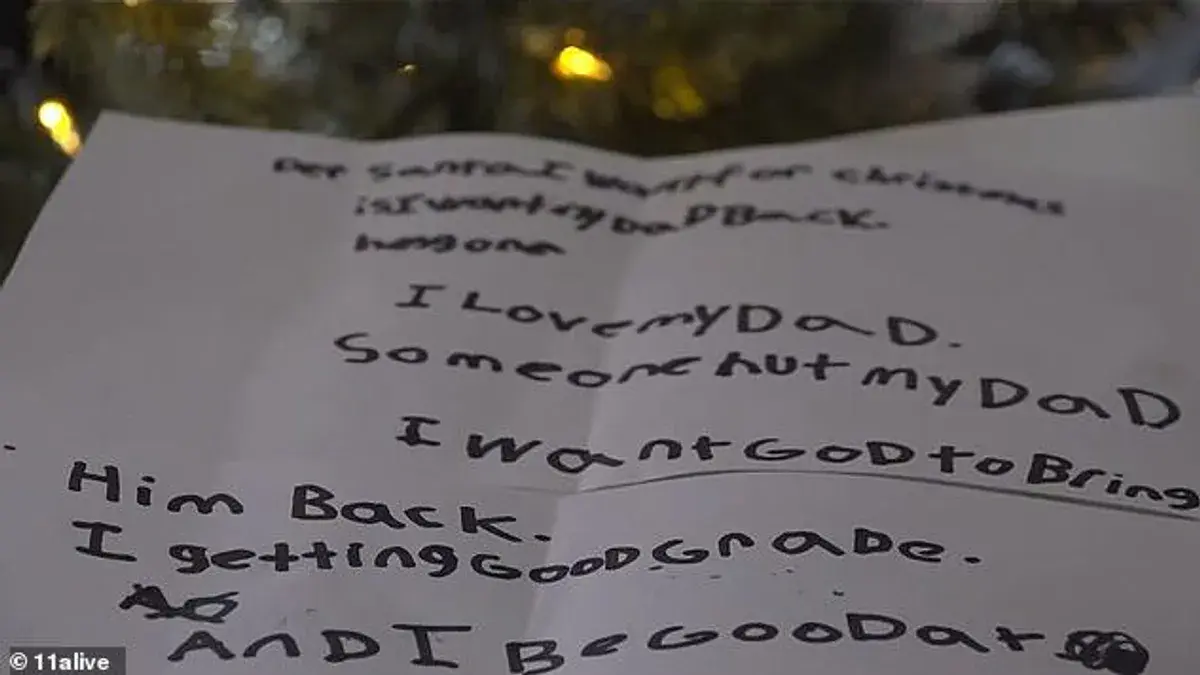 Der Santa I want for christmas
is I want my DaD Back.
he gone
I Love my DaD.
Someone hut my DaD
I want GoD to Bring
Him Back.
I getting GooD GraDe.
AnD I Be GooD at
© 11alive